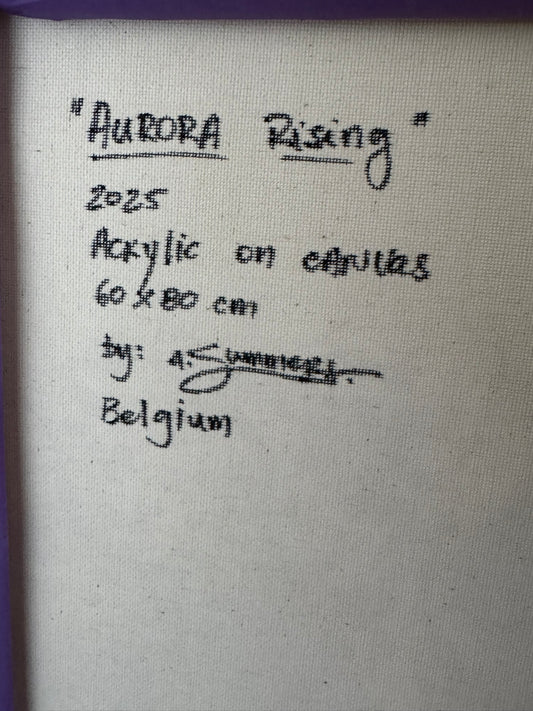 "AURORA Rising"
2025
Acrylic on CANVAS
60 x 80 cm
by: A. Summers.
Belgium